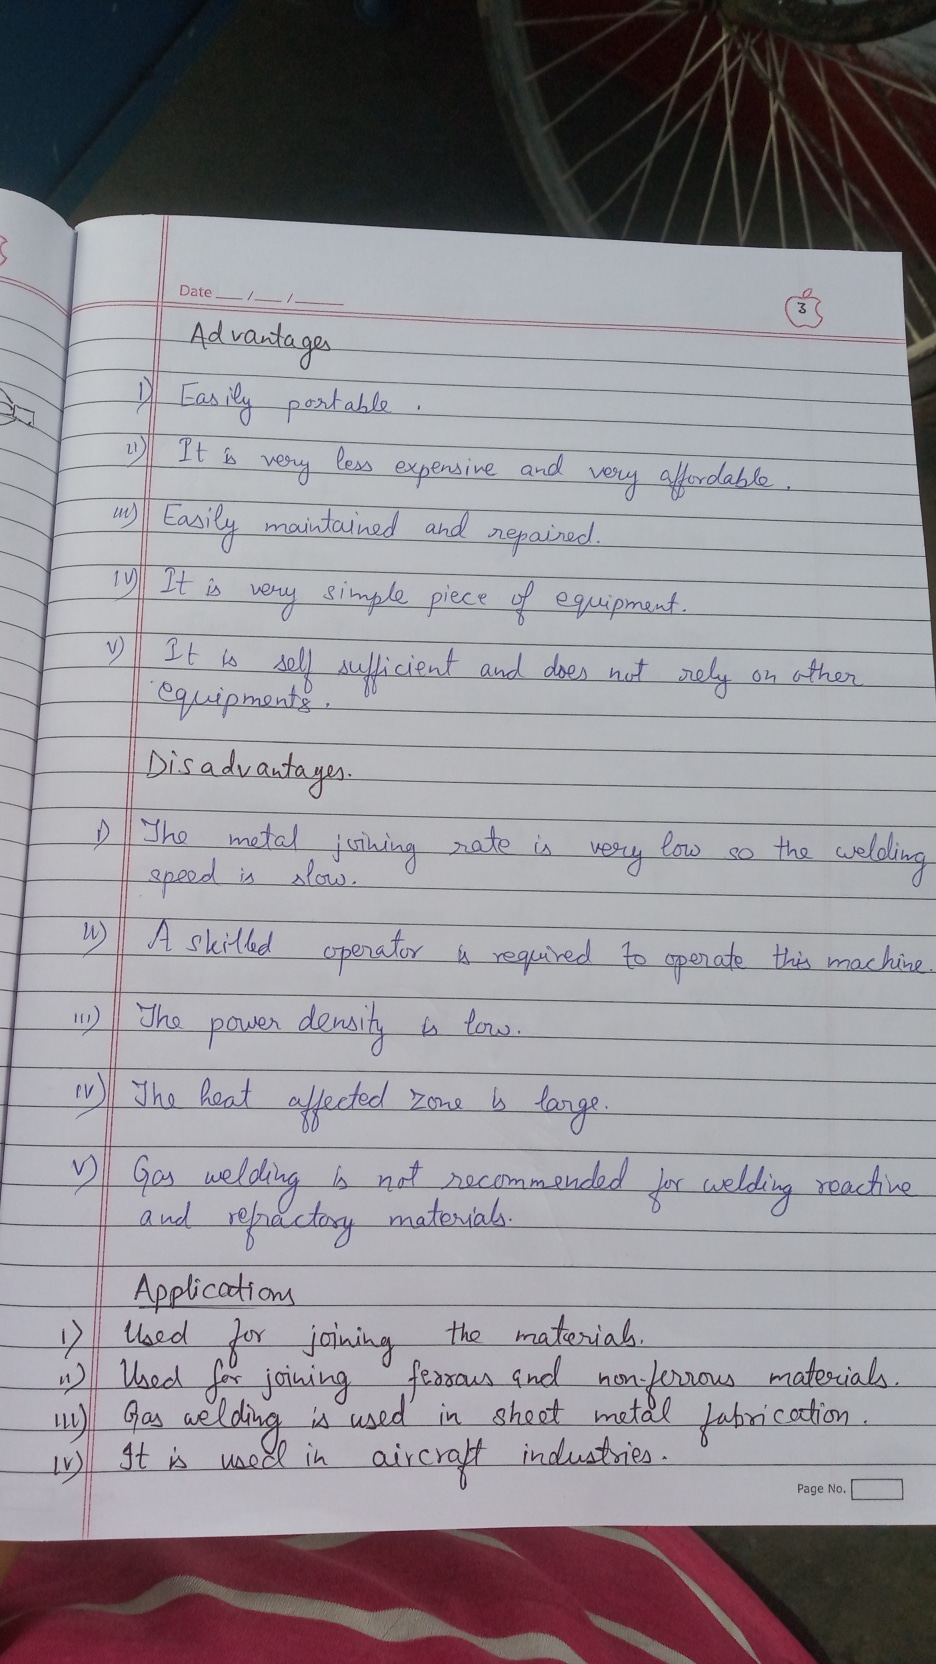 Date __/__/____
3
Advantages
i) Easily portable.
ii) It is very less expensive and very affordable.
iii) Easily maintained and repaired.
iv) It is very simple piece of equipment.
v) It is self sufficient and does not rely on other
equipments.
Disadvantages.
i) The metal joining rate is very low so the welding
speed is slow.
ii) A skilled operator is required to operate this machine.
iii) The power density is low.
iv) The heat affected zone is large.
v) Gas welding is not recommended for welding reactive
and refractory materials.
Applications
i) Used for joining the materials.
ii) Used for joining ferrous and non-ferrous materials.
iii) Gas welding is used in sheet metal fabrication.
iv) It is used in aircraft industries.
Page No.